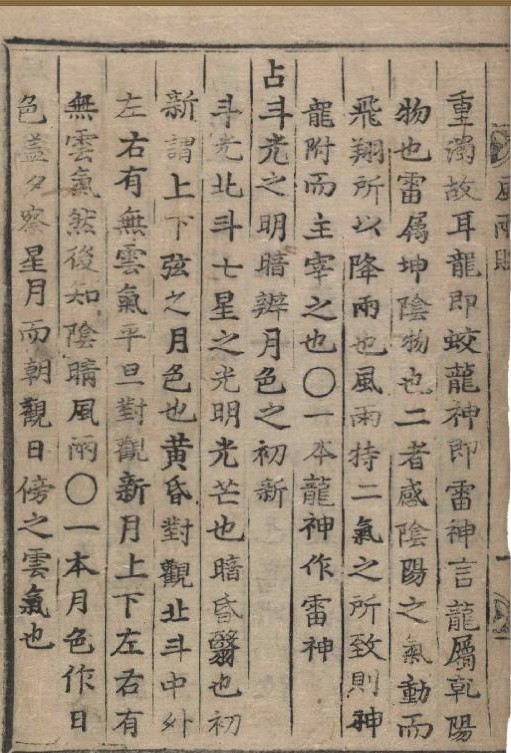 風雨賦
重濁故耳龍即蛟龍神即雷神言龍屬乾陽
物也雷属坤陰物也二者感陰陽之氣動而
飛翔所以降雨也風雨特二氣之所致則神
龍附而主宰之也〇一本龍神作雷神
占斗光之明暗辨月色之初新
斗光北斗七星之光明光芒也暗昏翳也初
新謂上下弦之月色也黄昏對觀北斗中外
左右有無雲氣平旦對觀新月上下左右有
無雲氣然後知陰晴風雨〇一本月色作日
色盖夕察星月而朝觀日傍之雲氣也